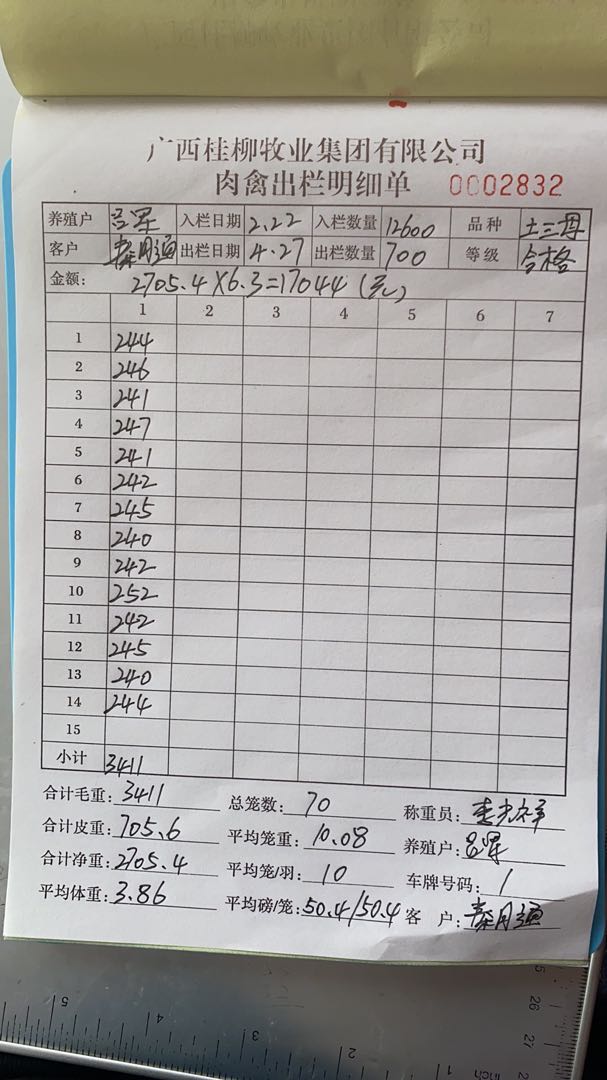 广西桂柳牧业集团有限公司
肉禽出栏明细单 0002832
养殖户 入栏日期 2.22 入栏数量 12600 品种 土三丹
客户 秦月通 出栏日期 4.27 出栏数量 700 等级 合格
金额: 2705.4×6.3=17044(元)
1 2 3 4 5 6 7
1 244
2 246
3 241
4 247
5 241
6 242
7 245
8 240
9 242
10 252
11 242
12 245
13 240
14 244
15
小计 3411
合计毛重: 3411 总笼数: 70 称重员:
合计皮重: 705.6 平均笼重: 10.08 养殖户:
合计净重: 2705.4 平均笼/羽: 10 车牌号码: 1
平均体重: 3.86 平均磅/笼: 50.4/50.4 客户: 秦月通
5 4 3 2 1 inch
25 26 27